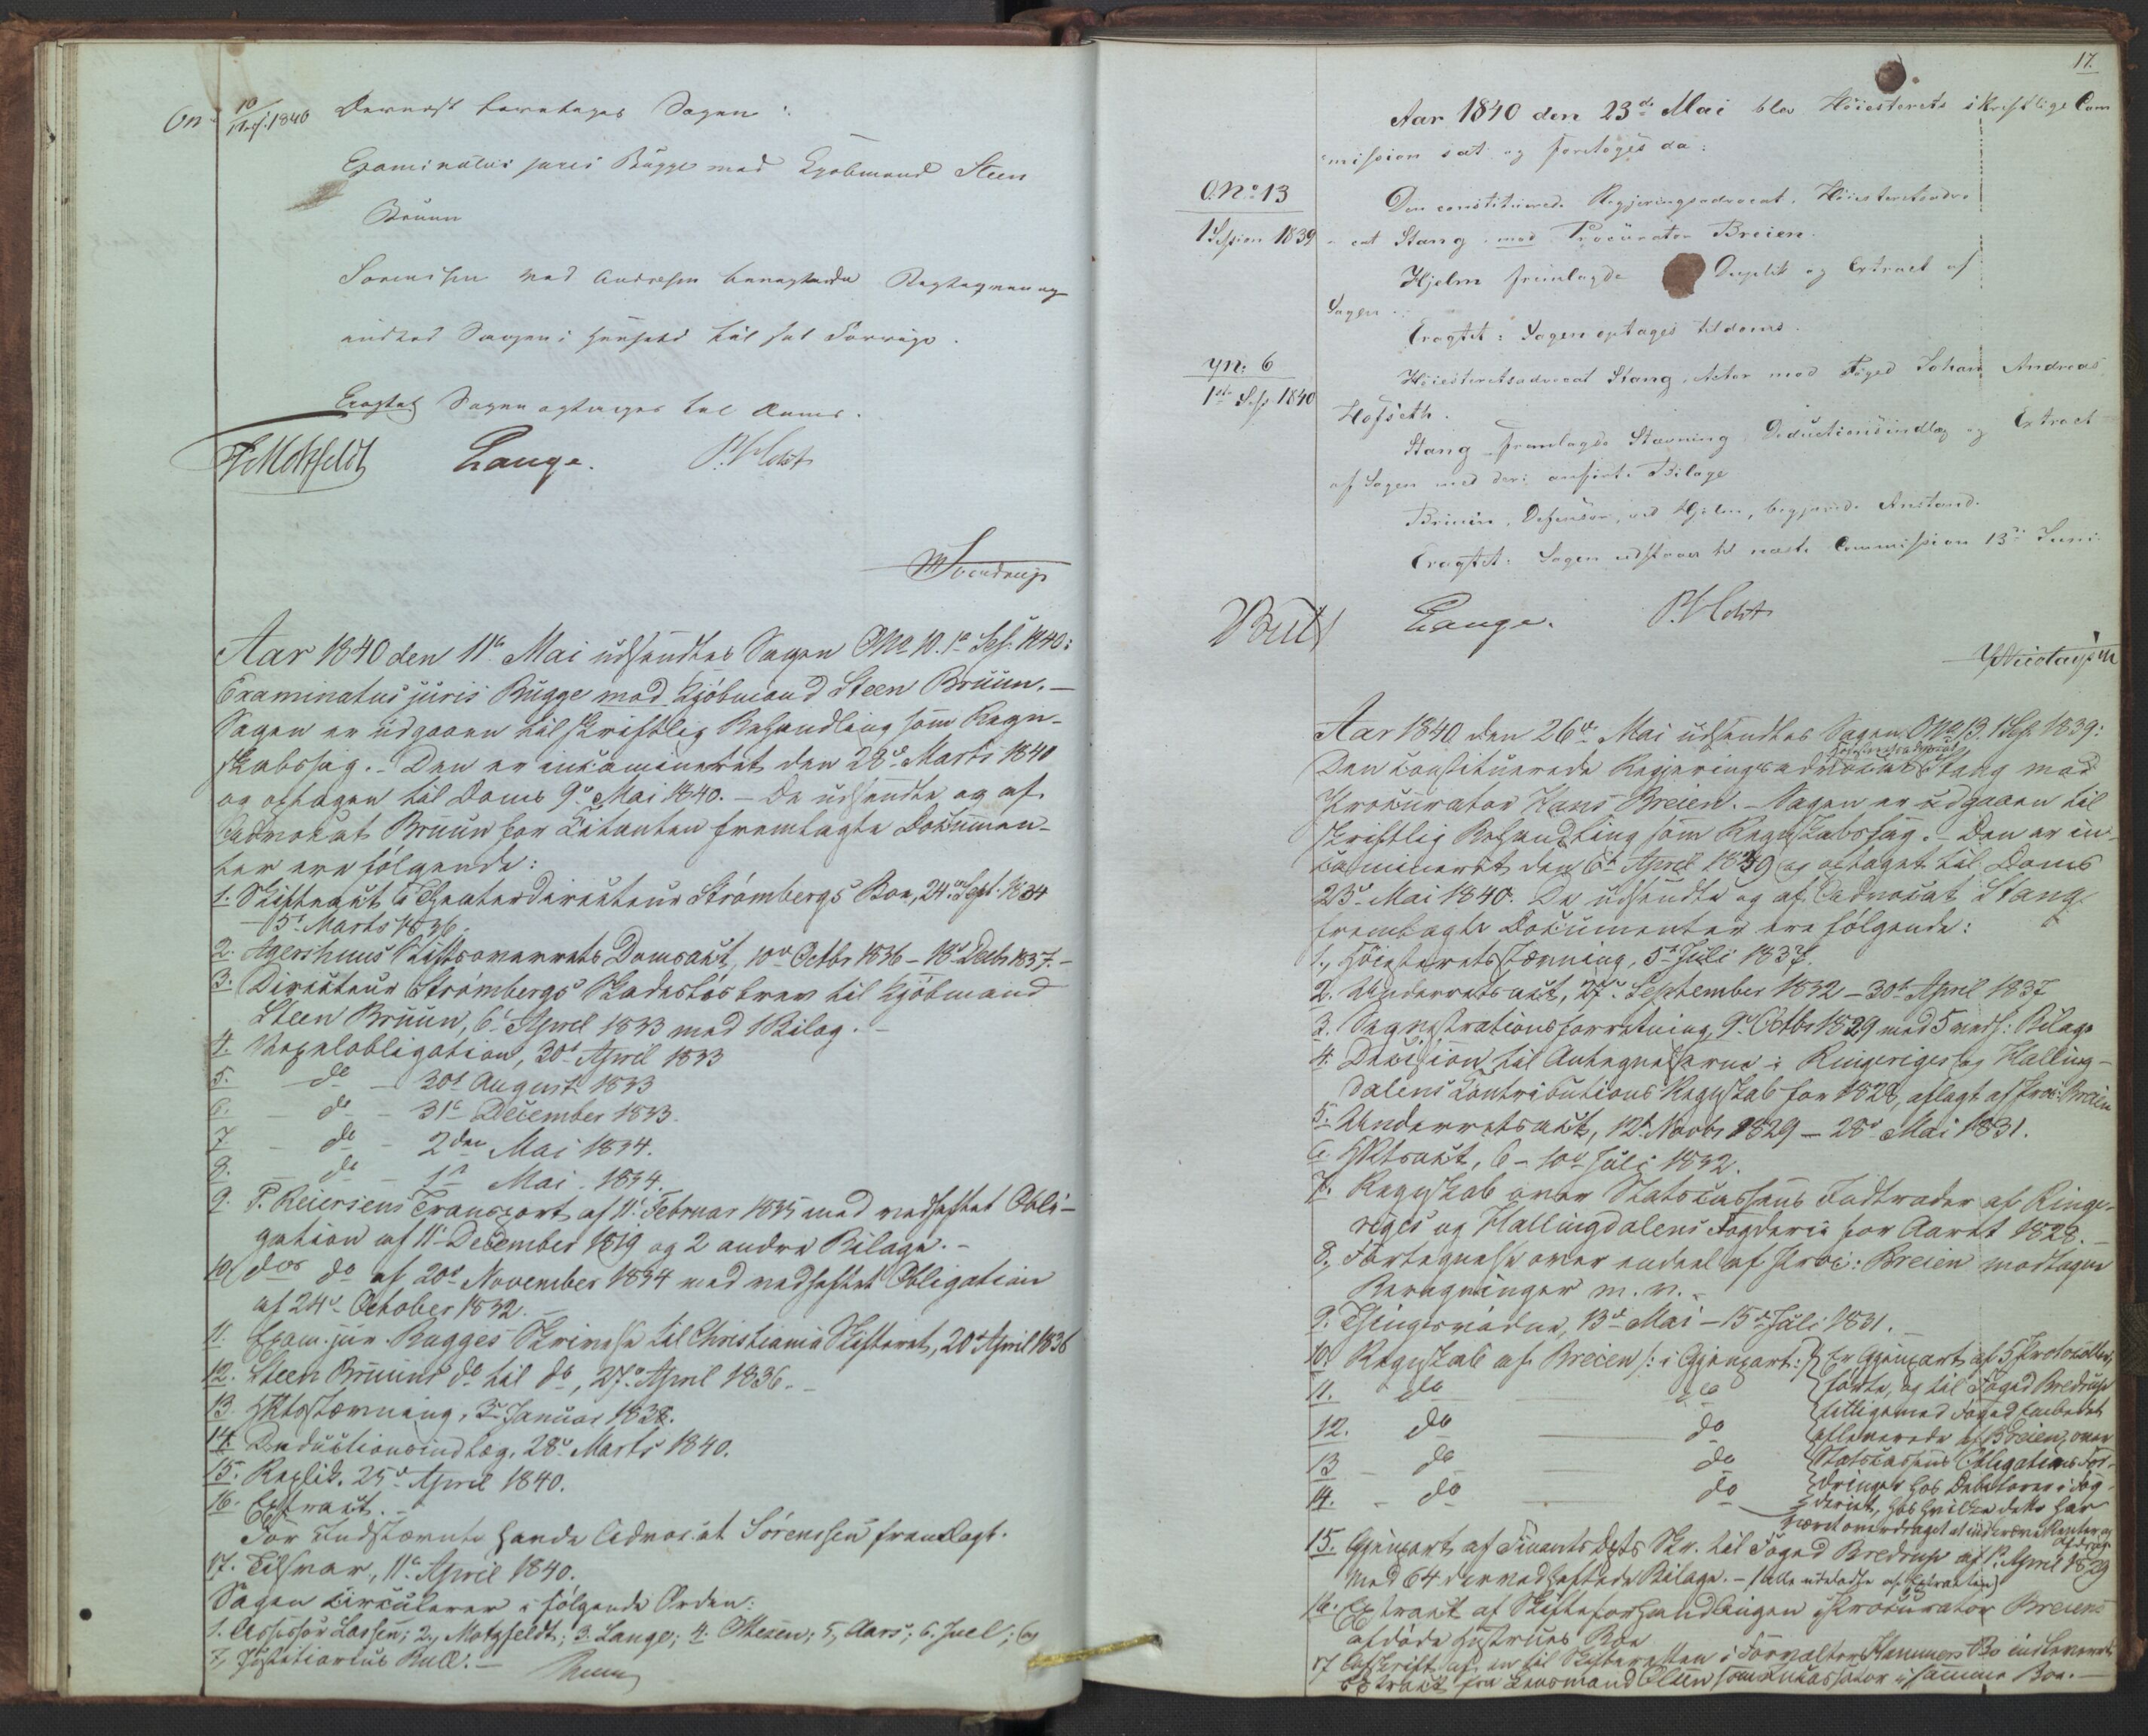 On 10/1 Ses. 1840 Dernæst foretages Sagen:
Examinatus juris Bugge mod Kjøbmand Steen
Bruun
Sørensen ved Andresen
Sagen i Henhold til sit Forrige.
Eragtet Sagen optages til Doms.
Motzfeldt Lange. P. Holst
Aar 1840 den 11te Mai udsendtes Sagen O No 10. 1ste Ses: 1840:
Examinatus juris Bugge mod Kjøbmand Steen Bruun. —
Sagen er udgaaen til skriftlig Behandling som Regn-
skabssag. — Den er incamineret den 28de Marts 1840
og optagen til Doms 9de Mai 1840. — De udsendte og af
Advokat Bruun for Citanten fremlagte Dokumen-
ter ere følgende:
1. Skifteakt i Theaterdirecteur Strømbergs Boe, 24de Sept. 1834
— 15de Marts 1836.
2. Agershuus Stiftsoverrets Domsakt, 10de Octbr 1836 — 18de Decbr 1837. —
3. Directeur Strømbergs Skadesløsbrev til Kjøbmand
Steen Bruun, 6te April 1833 med 1 Bilag. —
4. Vexelobligation, 30te April 1833
5. — do — 30te August 1833
6. — do — 31te December 1833.
7. — do — 2den Mai 1834.
8. — do — 1ste Mai 1834.
9. P. Reiersens Transport af 11te Februar 1835 med vedheftet Obli-
gation af 11te December 1819 og 2 andre Bilage. —
10. dos do af 20de November 1834 med vedheftet Obligation
af 24de October 1832. —
11. Exam. jur. Bugges Skrivelse til Christiania Skifteret, 20de April 1836
12. Steen Bruuns do til do, 27de April 1836. —
13. HRtsstævning, 3de Januar 1838.
14. Deductionsindlæg, 28de Marts 1840.
15. Replik, 25de April 1840.
16. Extrakt. —
For Indstævnte havde Advocat Sørenssen fremlagt.
17. Tilsvar, 11te April 1840.
Sagen circulerer i følgende Orden:
1. Assessor Lassen; 2, Motzfeldt; 3. Lange; 4. OMejen; 5, Aars; 6. Juel; og
7, Justitiarius Bull. —
17.
Aar 1840 den 23de Mai blev Høiesterets skriftlige Com
mission sat og foretoges da:
O. No 13
1 Session 1839
Den constituerede Regjeringsadvocat, Høiesteretsadvo
cat Stang mod Procurator Breien.
Hjelm fremlagde Duplik og Extract af
Sagen.
Eragtet: Sagen optages til doms.
No: 6
1ste Ses 1840
Høiesteretsadvocat Stang, Actor mod Foged Johan Andreas
Hofseth.
Stang fremlagde Stævning, Deductionsindlæg og Extract
af Sagen med deri anførte Bilage
Breien, Defensor, ved Hjelm, begjærede Anstand.
Eragtet: Sagen udstaaer til næste Commission 13de Juni.
Bull Lange. P. Holst
Aar 1840 den 26de Mai udsendtes Sagen O No 13. 1 Ses. 1839:
Den constituerede Regjeringsadvocat Høiesteretsadvocat Stang mod
Procurator Hans Breien. — Sagen er udgaaen til
skriftlig Behandling som Regnskabssag. — Den er in-
camineret den 6te April 1839 og optaget til Doms
23de Mai 1840. De udsendte og af Advocat Stang
fremlagte Documenter ere følgende:
1., Høiesteretsstævning, 5te Juli 1837.
2. Underretsakt, 27de September 1832 — 30te April 1837
3. Seqvestrationsforretning, 9de Octbr 1829 med 5 vedh: Bilage
4. Decision til Antegnelserne i Ringeriges og Halling-
dalens Contributions Regnskab for 1828, aflagt af Proc: Breien
5. Underretsakt, 12te Novbr 1829 — 28de Mai 1831.
6. HRtsakt, 6 — 10de Juli 1832.
7. Regnskab over Statscassens Indtrader af Ringe-
riges og Hallingdalens Fogderie for Aaret 1828. —
8, Fortegnelse over endeel af Proc: Breien modtagne
Beregninger m. v. —
9. Thingsvidne, 13de Mai — 15de Juli 1831. —
10. Regnskab af Breien /: i Gjenpart:/ Er Gjenpart af 5 Protocoller,
11. do — do førte, og til Foged Bredrup
12. do — do tilligemed Foged Embedet
13 do — do afleverede af Breien, over
14. do — do Statscassens Obligations For-
dringer hos Debitorer i Fog-
deriet, hos hvilke dette har
været overdraget at inddrive Renter og
Afdrag.
15. Gjenpart af Finants Dpts Skr. til Foged Bredrup af 1ste April 1829
med 64 dermed heftede Bilage. — (alle udeladte af Extracten)
16. Extrakt af Skifteforhandlingen i Procurator Breiens
afdøde Hustrues Boe
17 Afskrift af en til Skifteretten i Forvalter Hammers Bo indleveret
Extrakt fra Lensmand Olsen som Incassator i samme Boe. —